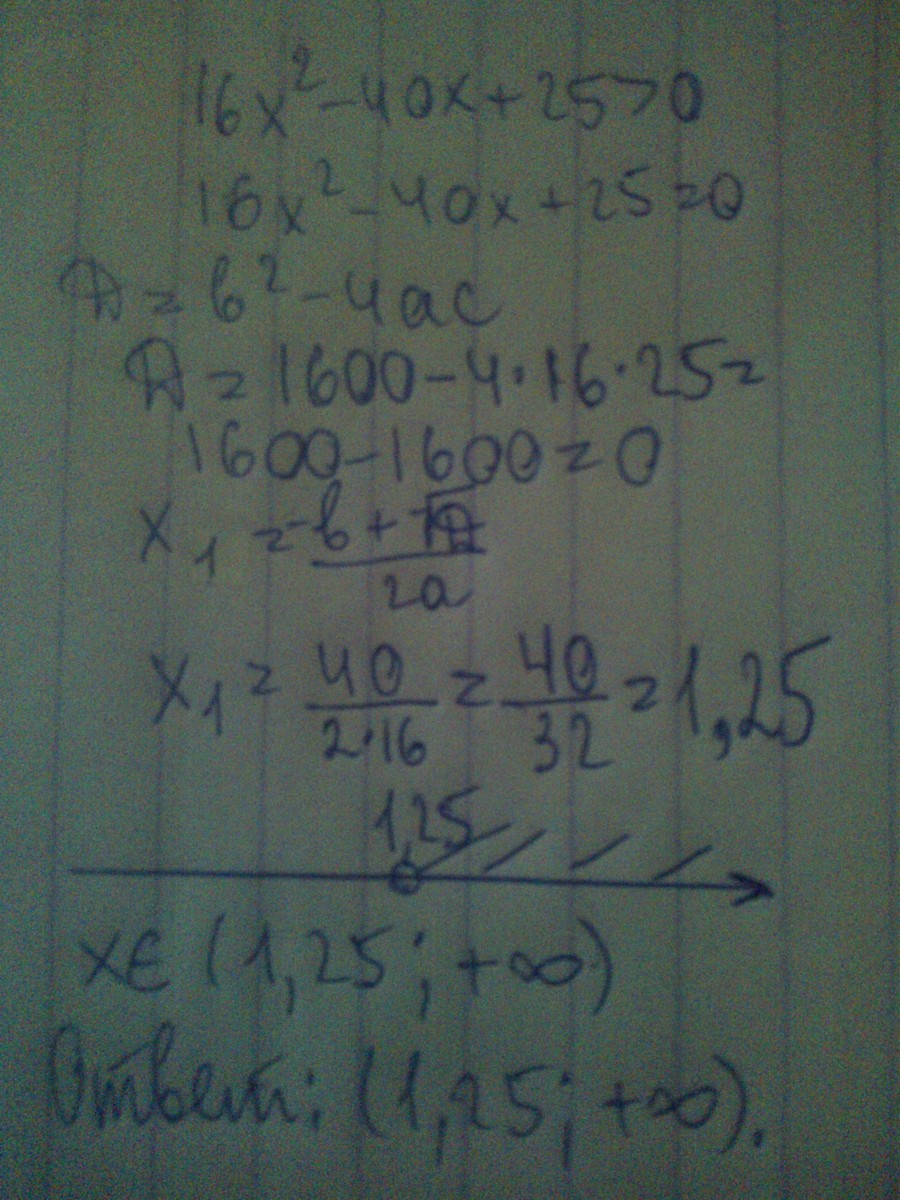 16x² - 40x + 25 > 0
16x² - 40x + 25 = 0
D = b² - 4ac
D = 1600 - 4·16·25 =
1600 - 1600 = 0
x₁ = (-b + √D) / 2a
x₁ = 40 / (2·16) = 40 / 32 = 1,25
1,25
x ∈ (1,25; +∞)
Ответ: (1,25; +∞).